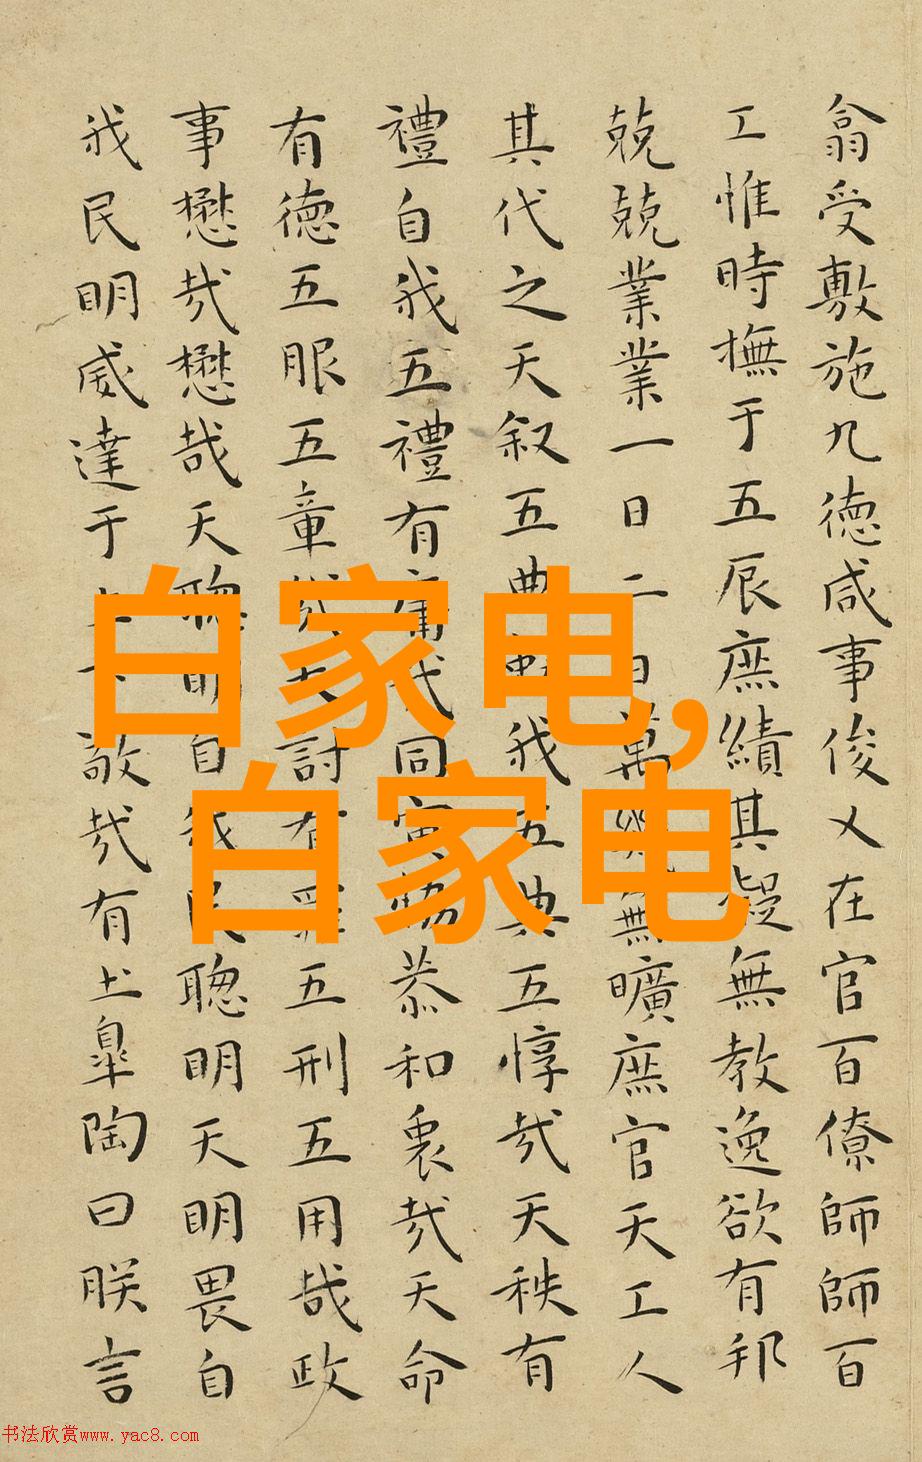 翕受敷施九德咸事俊乂在官百僚師師百
工惟時撫于五辰庶績其凝無教逸欲有邦
兢兢業業一日二日萬幾無曠庶官天工人
其代之天叙五典勑我五典五惇哉天秩有
禮自我五禮有庸哉同寅協恭和衷哉天命
有德五服五章哉天討有罪五刑五用哉政
事懋哉懋哉天聰明自我民聰明天明畏自
我民明威達于上下敬哉有土皋陶曰朕言
白家电,
白家电
书法欣赏www.yac8.com